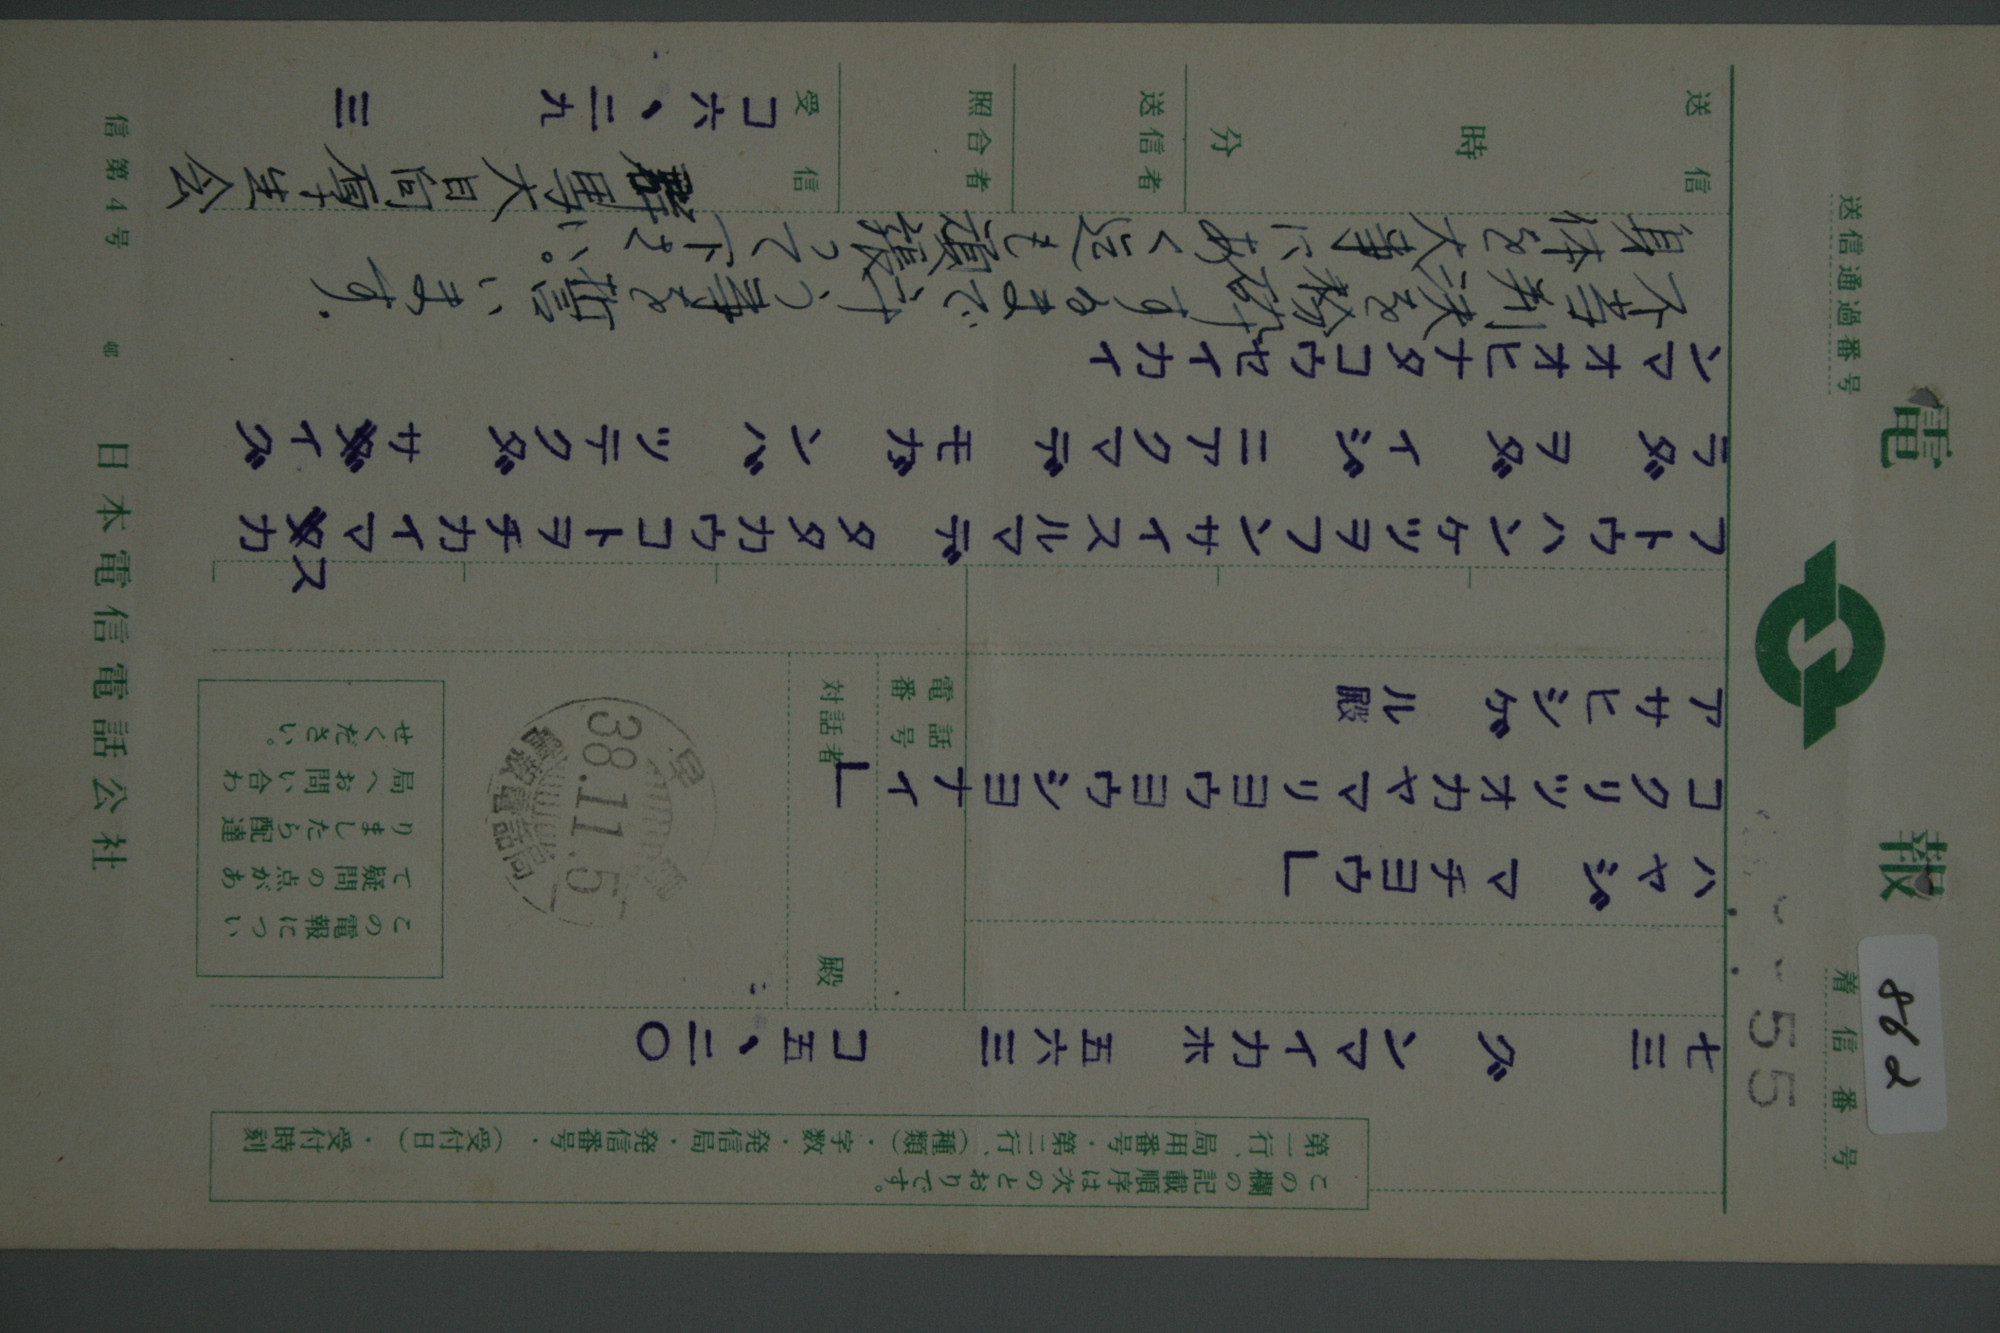 電報
送信通過番号
着信番号
862
55
この欄の記載順序は次のとおりです。
第一行、局用番号・第二行、(種類)・字数・発信局・発信番号・(受付日)・受付時刻
七三 グ ンマイカホ 五六三 コ五、二〇
ハヤジ マチヨウ」
コクリツオカヤマリヨウヨウジヨナイ」
アサヒシゲ ル殿
電話番号
対話者 殿
38.11.5
電報電話局
この電報につい
て疑問の点があ
りましたら配達
局へお問い合わ
せください。
フトウハンケツヲフンサイスルマデ タタカウコトヲチカイマスカ
ラダ ヲダ イジ ニアクマデ モガ ンバ ツテクダ サイグ
ンマオオヒナタコウセイカイ
不当判決を粉砕するまで斗う事を誓います.
身体を大事にあく迄も頑張って下さい。
群馬大日向厚生会
送信 時 分
送信者
照合者
受信
コ六、二九 三
信第4号
日本電信電話公社